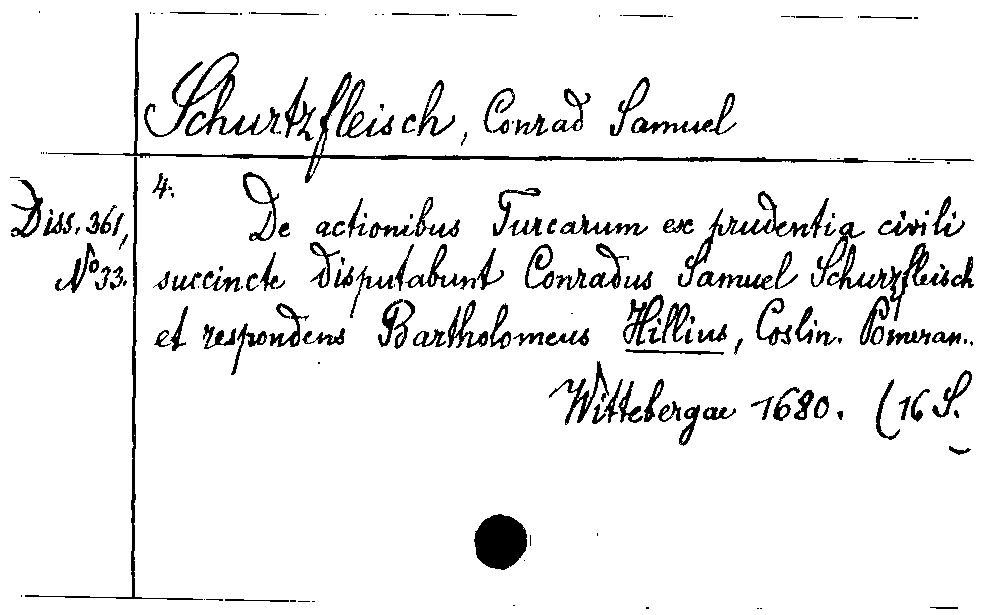 Schurtzfleisch, Conrad Samuel
4.
Diss. 361,
No 33.
De actionibus Turcarum ex prudentia civili
succincte disputabunt Conradus Samuel Schurzfleisch
et respondens Bartholomeus Hillius, Coslin. Pomeran..
Wittebergae 1680. (16 S.